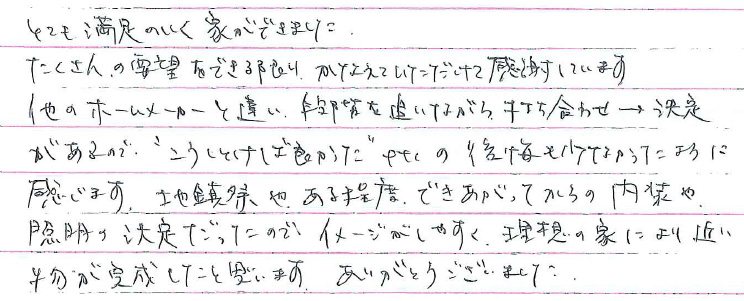 とても満足のいく家ができました。
たくさんの要望をできる限り、かなえていただけて感謝しています
他のホームメーカーと違い、段階を追いながら、打ち合わせ→決定
があるので、"こうしとけば良かった"etcの後悔も少なかったように
感じます。地鎮祭や、ある程度、できあがってからの内装や、
照明の決定だったので、イメージがしやすく、理想の家により近い
物が完成したと思います。ありがとうございました。